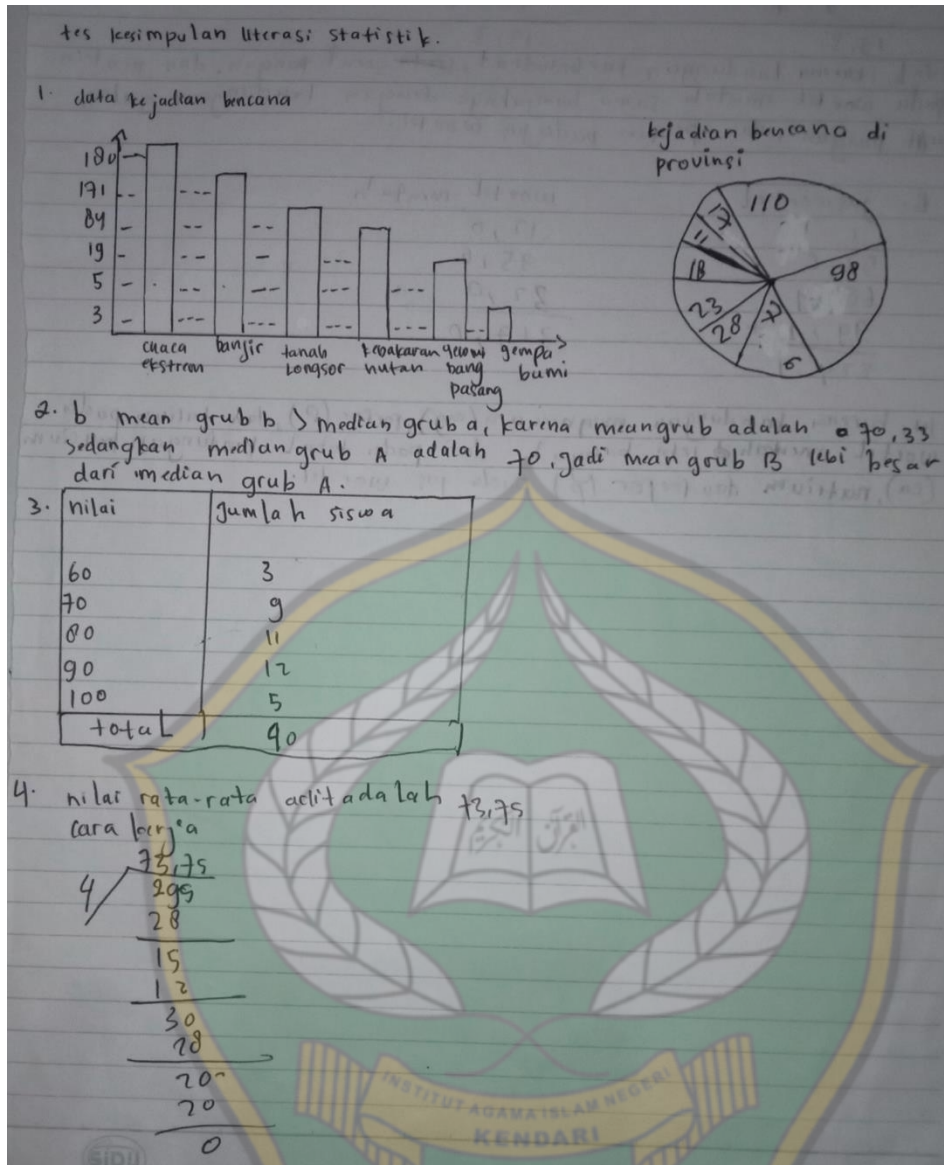 tes kesimpulan literasi statistik.
1. data kejadian bencana
180
171
84
19
5
3
cuaca ekstrem
banjir
tanah Longsor
kebakaran hutan
gelombang pasang
gempa bumi
kejadian bencana di
provinsi
110
98
7
6
28
23
18
11
17
2. b mean grub b > median grub a, karena meangrub adalah 70,33
sedangkan median grub A adalah 70. Jadi mean grub B lebi besar
dari median grub A.
3. nilai Jumlah siswa
60 3
70 9
80 11
90 12
100 5
total 40
4. nilai rata-rata adlit adalah 73,75
Cara kerja
73,75
4 295
28
15
12
30
28
20
20
0
القرآن الكريم
INSTITUT AGAMA ISLAM NEGERI
KENDARI
SIDU